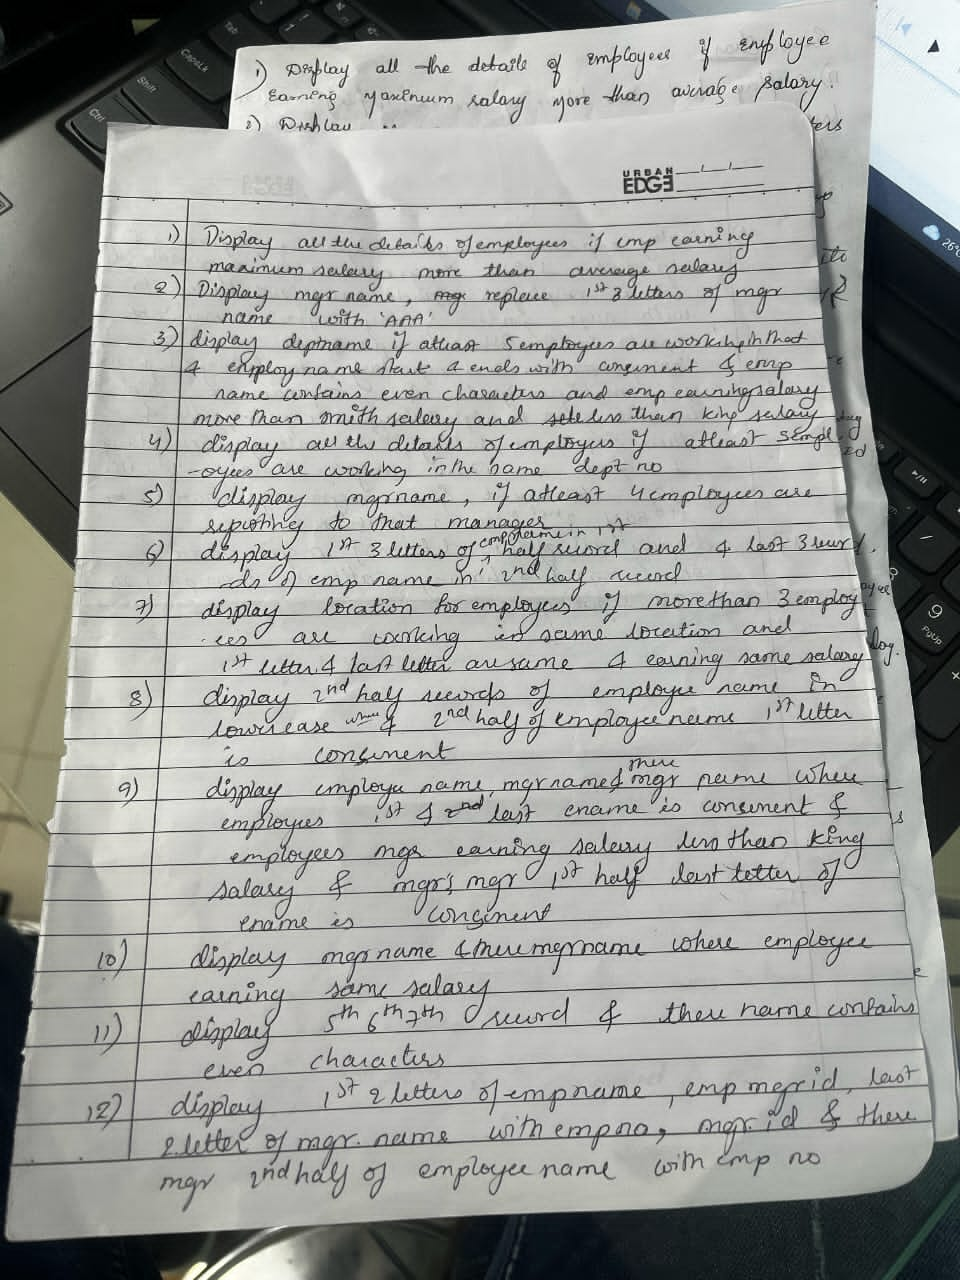 1) Display all the details of employees if employee
Earning maximum salary more than average salary.
2) Display
ters
URBAN
EDGE
1) Display all the details of employees if emp earning
maximum salary more than average salary
2) Display mgr name, replace 1st 3 letters of mgr
name with 'AAA'
3) display deptname if atleast 5 employees are working in that
& employ name start & ends with consunent & emp
name contains even characters and emp earning salary
more than smith salary and less than king salary
4) display all the details of employees if atleast 5 empl
-oyees are working in the same dept no
5) display mgrname, if atleast 4 employees are
reporting to that manager
6) display 1st 3 letters of empname in 1st half record and & last 3
of emp name in 2nd half record
7) display location for employees if more than 3 employ
-ees are working in same location and
1st letter & last letter are same & earning same salary
8) display 2nd half records of employee name in
lowercase & 2nd half of employee name 1st letter
is consunent
9) display employee name, mgr name & there mgr name where
employees 1st & 2nd last ename is consunent &
employees mgr earning salary less than king
salary & mgr's mgr 1st half last letter of
ename is consinent
10) display mgr name & there mgrname where employee
earning same salary
11) display 5th 6th 7th record & there name contains
even characters
12) display 1st 2 letters of empname, emp mgrid, last
2 letter of mgr. name with empno, mgr.id & there
mgr 2nd half of employee name with emp no
Tab
CapsLk
Shift
Ctrl
9
PgUp
26°